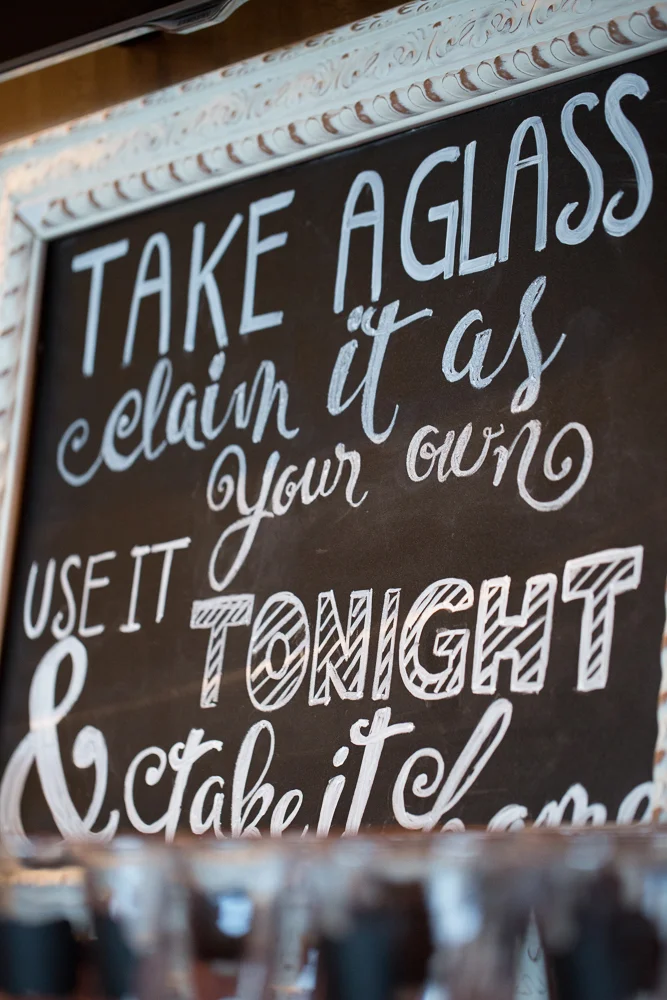 TAKE A GLASS
claim it as
your own
USE IT TONIGHT
& take it home